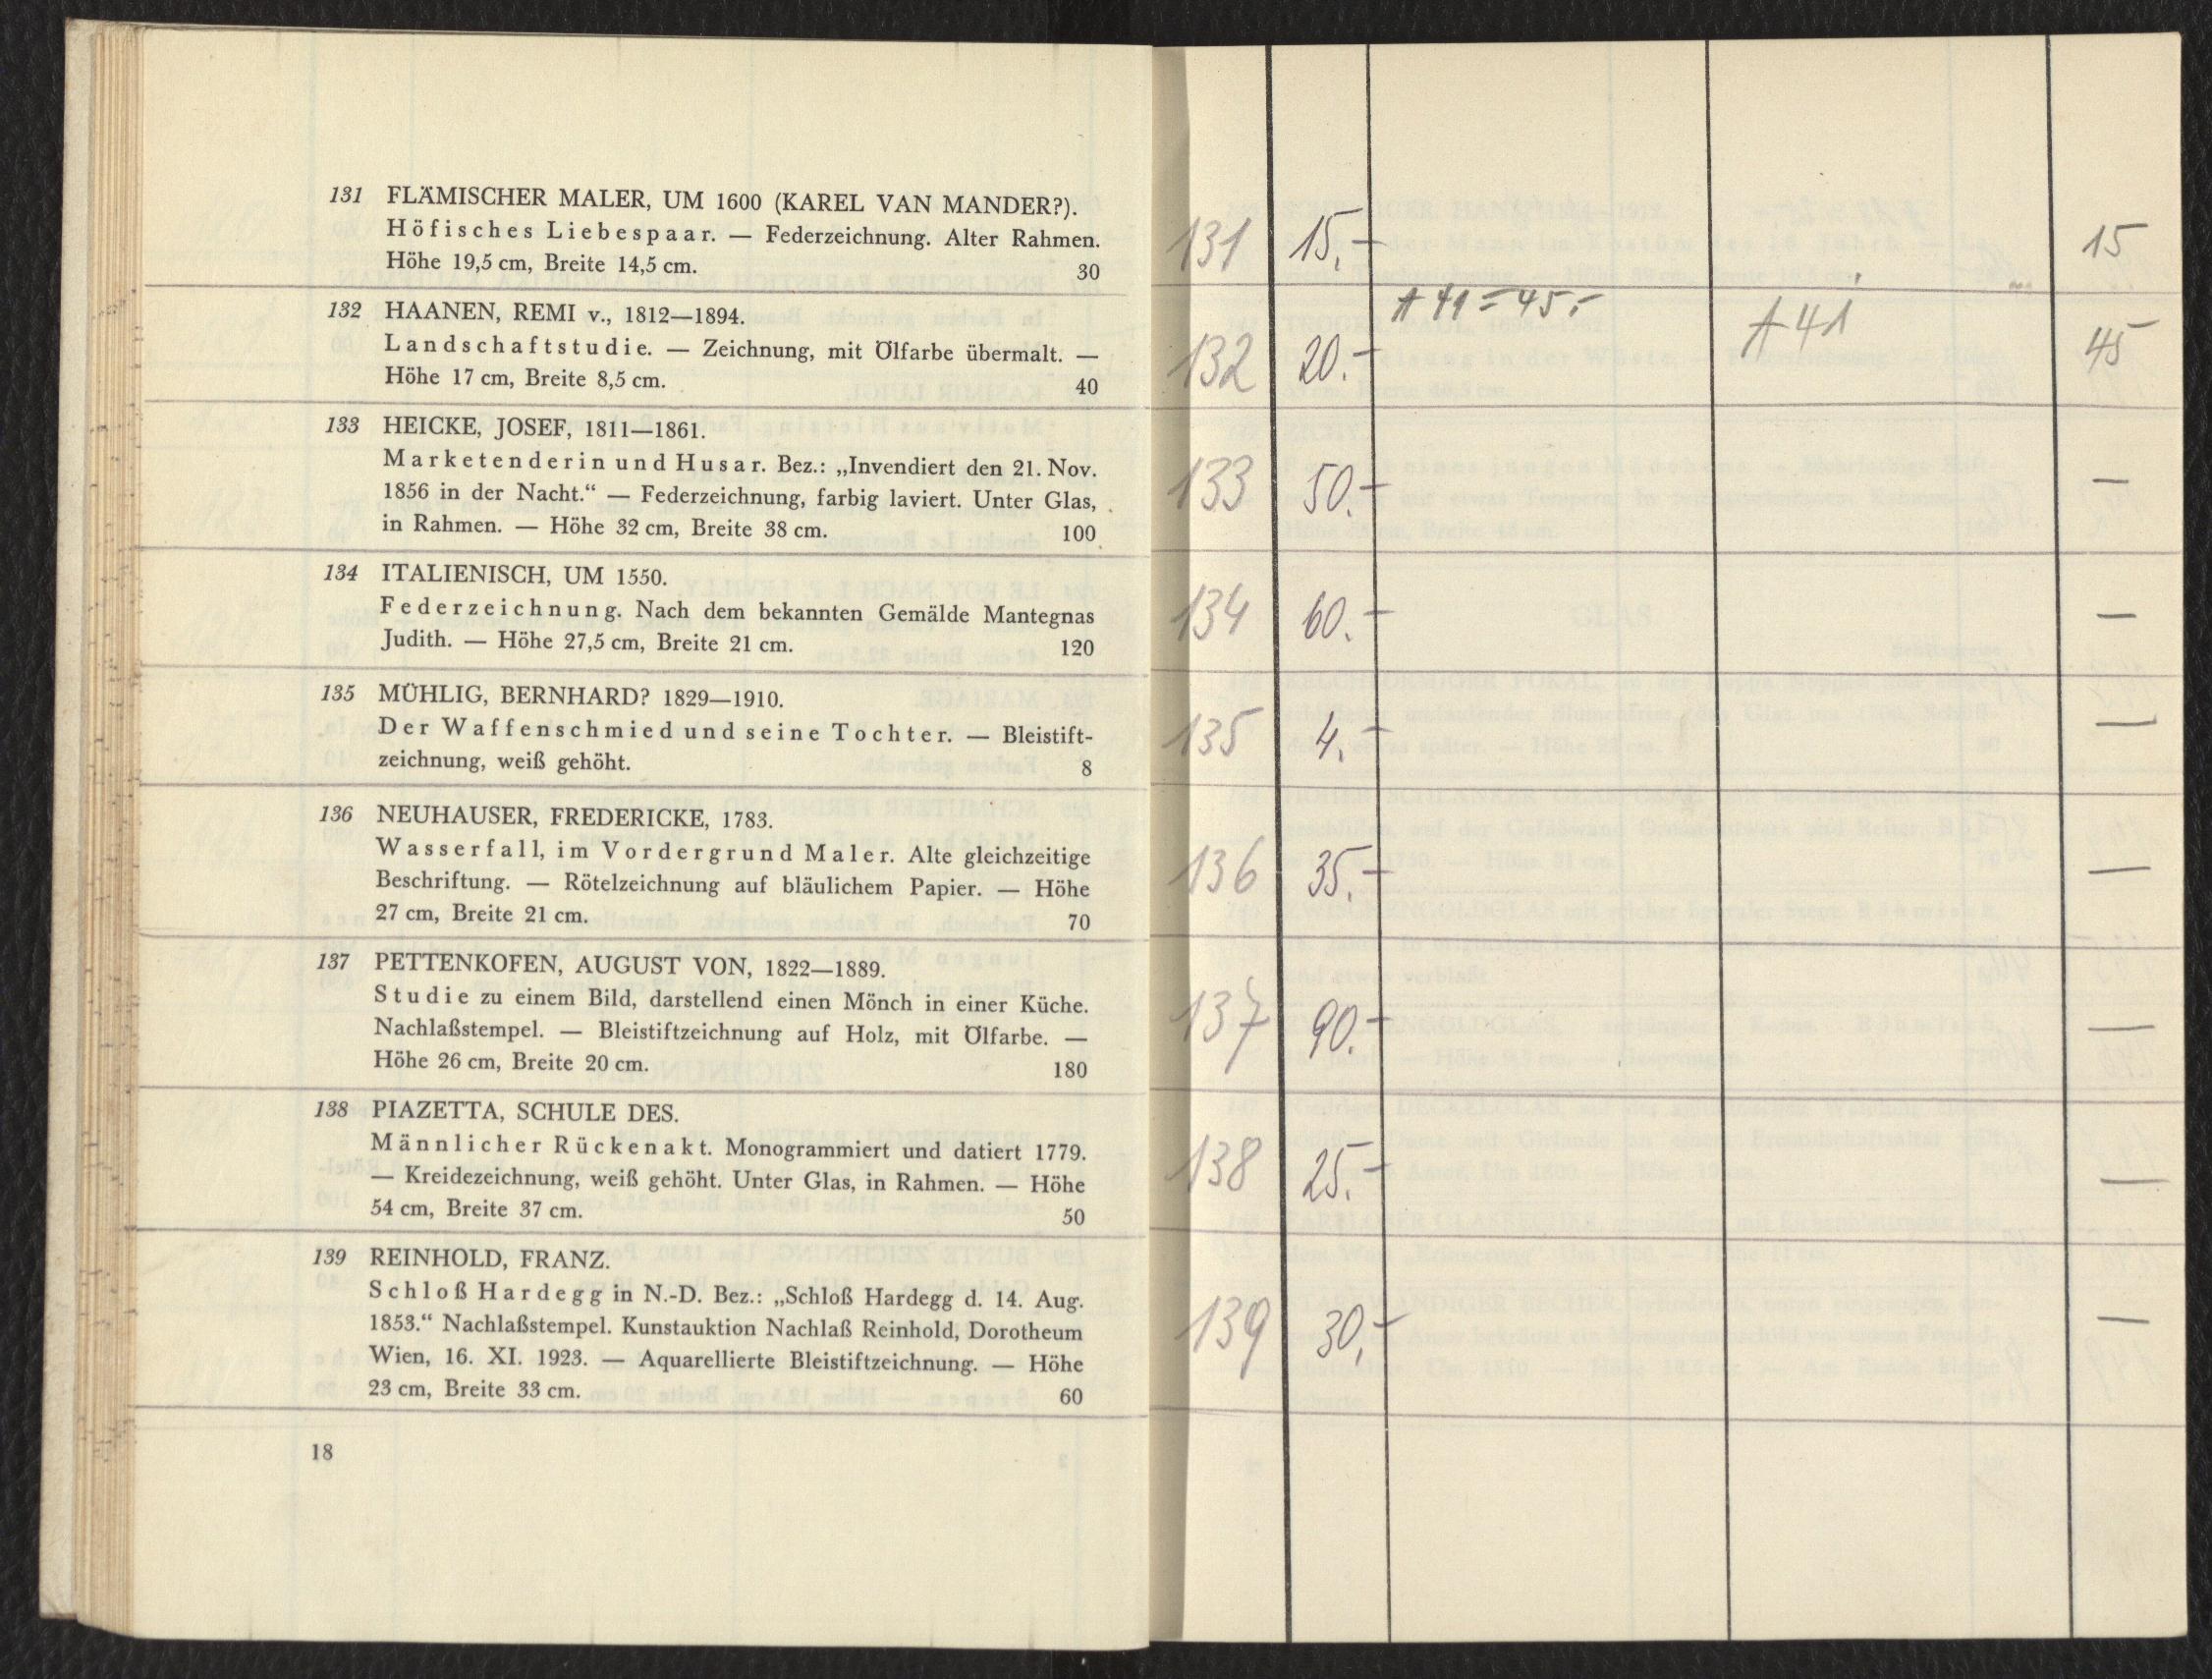 131 FLÄMISCHER MALER, UM 1600 (KAREL VAN MANDER?).
Höfisches Liebespaar. — Federzeichnung. Alter Rahmen.
Höhe 19,5 cm, Breite 14,5 cm. 30
132 HAANEN, REMI v., 1812—1894.
Landschaftstudie. — Zeichnung, mit Ölfarbe übermalt. —
Höhe 17 cm, Breite 8,5 cm. 40
133 HEICKE, JOSEF, 1811—1861.
Marketenderin und Husar. Bez.: „Invendiert den 21. Nov.
1856 in der Nacht.“ — Federzeichnung, farbig laviert. Unter Glas,
in Rahmen. — Höhe 32 cm, Breite 38 cm. 100
134 ITALIENISCH, UM 1550.
Federzeichnung. Nach dem bekannten Gemälde Mantegnas
Judith. — Höhe 27,5 cm, Breite 21 cm. 120
135 MÜHLIG, BERNHARD? 1829—1910.
Der Waffenschmied und seine Tochter. — Bleistift-
zeichnung, weiß gehöht. 8
136 NEUHAUSER, FREDERICKE, 1783.
Wasserfall, im Vordergrund Maler. Alte gleichzeitige
Beschriftung. — Rötelzeichnung auf bläulichem Papier. — Höhe
27 cm, Breite 21 cm. 70
137 PETTENKOFEN, AUGUST VON, 1822—1889.
Studie zu einem Bild, darstellend einen Mönch in einer Küche.
Nachlaßstempel. — Bleistiftzeichnung auf Holz, mit Ölfarbe. —
Höhe 26 cm, Breite 20 cm. 180
138 PIAZETTA, SCHULE DES.
Männlicher Rückenakt. Monogrammiert und datiert 1779.
— Kreidezeichnung, weiß gehöht. Unter Glas, in Rahmen. — Höhe
54 cm, Breite 37 cm. 50
139 REINHOLD, FRANZ.
Schloß Hardegg in N.-D. Bez.: „Schloß Hardegg d. 14. Aug.
1853.“ Nachlaßstempel. Kunstauktion Nachlaß Reinhold, Dorotheum
Wien, 16. XI. 1923. — Aquarellierte Bleistiftzeichnung. — Höhe
23 cm, Breite 33 cm. 60
18
131 15.— 15
A 41 = 45.-
132 20.— A 41 45
133 50.— —
134 60.— —
135 4.— —
136 35.— —
137 90.— —
138 25.— —
139 30.— —